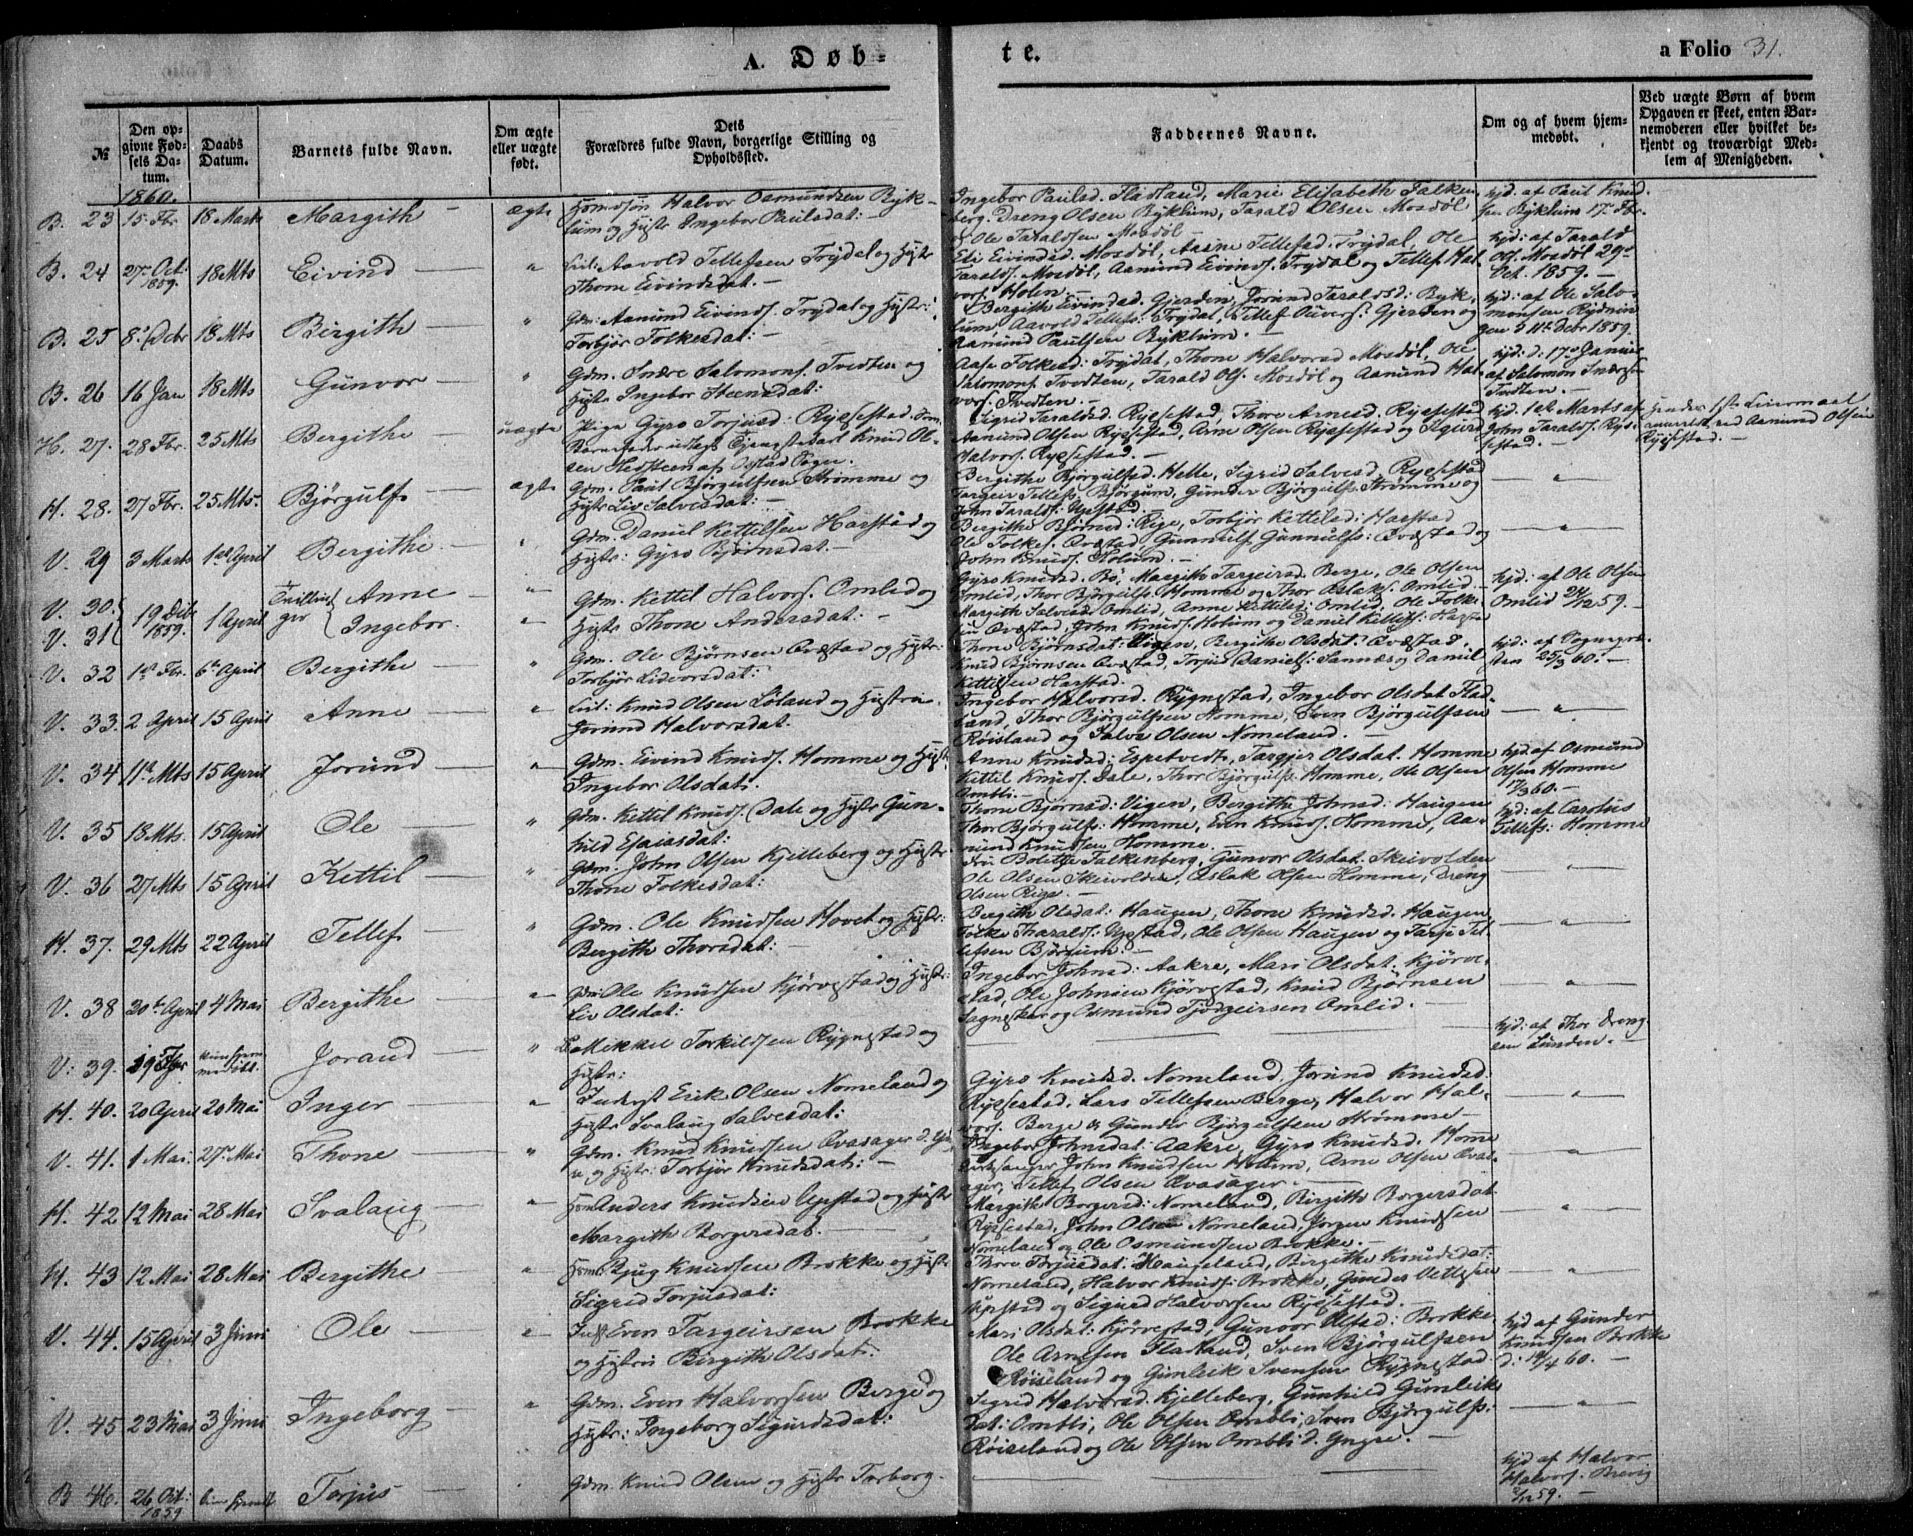 A. Døb-
te.
a Folio 31.
№
Den op-
givne Fød-
sels Da-
tum.
Daabs
Datum.
Barnets fulde Navn.
Om ægte
eller uægte
født.
Dets
Forældres fulde Navn, borgerlige Stilling og
Opholdssted.
Faddernes Navne.
Om og af hvem hjem-
medøbt.
Ved uægte Børn af hvem
Opgaven er skeet, enten Bar-
nemoderen eller hvilket be-
kjendt og troværdigt Med-
lem af Menigheden.
1860.
B. 23 15 Fbr. 18 Marts Margith ægte
Halvor Osmundsen Byk-
lum og Hustr Ingebor Paulsdat:
Ingebor Paulsd. Fladland, Marie Elisabeth Falken
berg. Dreng Olsen Byklum, Tarald Olsen Mosdøl
og Ole Taraldsen Mosdøl
hjd. af Paul Knud
sen Byklum 17. Fbr.
B. 24 27 Oct: 1859. 18 Mts Eivind "
Aavold Tellefsen Trydal og Hustr
Thone Eivindsdat.
Eli Eivindsd. Mosdøl, Aasne Tellefsd. Trydal, Ole
Taralds. Mosdøl, Aamund Eivinds. Trydal og Tellef Hal
vors. Holen.
hjd: af Tarald
Ols. Mosdøl 29de
Oct. 1859.
B. 25 8 Dcbr 18 Mts Birgith "
Gdm: Aamund Eivinds. Trydal og Hustr:
Torbjør Folkesdat:
Bergith Eivindsd. Gjerden, Jorund Taraldsd: Byk-
lum, Aavold Tellefs: Trydal, Tellef Ouvers. Gjerden og
Aamund Paulsen Byklum.
hjd: af Ole Salo-
monsen Rydnin
gen d 11te Dcbr 1859.
B. 26 16 Jan 18 Mts Gunvor "
Gdm. Snære Salomons. Tvedten og
Hustr Ingebor Steensdat:
Aase Folkesd: Trydal, Thone Halvorsd Mosdøl, Ole
Salomons. Tvedten, Tarald Ols. Mosdøl og Aamund Hal
vors. Tvedten.
hjd: d: 17de Januar
af Salomon Snæres
Tvedten.
H. 27. 28 Fbr. 25 Mts Bergithe uægte
Pige Gyro Torjusd: Rysestad. Som
Barnefader udlagt Knud Ol-
sen
Sigrid Taraldsd. Rysestad, Thore Arnesd. Rysestad
Aamund Olsen Rysestad, Arne Olsen Rysestad og Sigurd
Halvors. Rysestad.
hjd. 1ste Marts af
John Taralds. Ryse-
stad.
Hendes 1ste Leiermaal
anmeldt ved Aamund Olsen
Rysestad.
H. 28. 27 Fbr. 25 Mts. Bjørgulf ægte
Gdm. Paul Bjørgulfsen Strømme og
Hustr Liv Salvesdat:
Bergithe Bjørgulfsd. Helle, Sigrid Salvesd. Rysestad
Targeir Tellefs. Bjørgum, Gunder Bjørgulfs. Strømme og
John Taralds: Upstad.
"
V. 29 3 Marts 1ste April Bergithe "
Gdm. Daniel Kettilsen Harstad og
Hustr: Gyro Bjørnsdat.
Bergithe Bjørnsd: Rige, Torbjør Kettilsd: Harstad
Ole Folkes. Qvæstad, Gunnulf Gunnulfs: Qvæstad og
John Knuds. Holum.
"
V. 30.
V. 31
19 Dcb 1859. 1 April Tvillin-
ger Anne
Ingebor.
Gdm. Kettil Halvors. Omlid og
Hustr Thone Andersdat:
Gyro Knudsd. Bø, Margith Targeirsd. Berge, Ole Olsen
Omlid, Thor Bjørgulfs. Homme og Thor Aslaks. Omlid.
Margith Salvesd. Omlid, Anne Kettilsd: Omlid, Ole Folke
sen Qvæstad, John Knuds. Holum og Daniel Kettils: Harstad
hjd: af Ole Olsen
Omlid 24/12 59.
V. 32 1ste Fbr. 6te April Bergithe "
Gdm. Ole Bjørnsen Qvæstad og Hustr:
Torbjør Lidvorsdat:
Thone Bjørnsdat: Vigen, Bergithe Olsdat: Qvæstad
Knud Bjørnsen Qvæstad, Torjus Daniels: Sannæs og Daniel
Kettilsen Harstad.
hjd: af Sognepræ-
sten 25/3 60.
V. 33. 2 April 15 April Anne "
Knud Olsen Løland og Hustru
Jorund Halvorsdat.
Ingebor Halvorsd. Rygnestad, Ingebor Olsdat Flad
land, Thor Bjørgulfsen Homme, Sven Bjørgulfsen
Røisland og Salve Olsen Nomeland.
"
V. 34 11te Mts 15 April Jorund "
Gdm. Eivind Knuds. Homme og Hust
Ingebor Olsdat.
Anne Knudsd: Espetvedt, Targjer Olsdat. Homme
Kettil Knuds. Dale, Thor Bjørgulfs. Homme, Ole Olsen
Ombli.
hjd. af Osmund
Olsen Homme
17/3 60.
V. 35 18 Mts. 15 April Ole "
Gdm. Kettil Knuds. Dale og Hustr Gun-
hild Esaiasdat:
Thone Bjørnsd: Vigen, Bergithe Johnsd: Haugen
Thor Bjørgulfs: Homme, Even Knuds. Homme, Aa-
mund Knudsen Homme.
hjd: af Carolus
Tellefs: Homme
V. 36 27 Mts 15 April Kettil "
Gdm: John Olsen Kjelleberg og Hustr:
Thone Folkesdat:
Fru Bolette Falkenberg, Gunvor Olsdat. Skeivolden
Ole Olsen Skeivolden, Aslak Olsen Homme, Dreng
Olsen Rige.
"
H. 37. 29 Mts 22 April Tellef "
Gdm. Ole Knudsen Hovet og Hustr:
Bergith Thorsdat:
Bergith Olsdat: Haugen, Thone Knudsd. Haugen
Folke Tharalds: Upstad, Ole Olsen Haugen og Tarje Tel-
lefsen Bjørgum.
"
V. 38 20te April 4 Mai Bergithe "
Gdm: Ole Knudsen Kjørvestad og Hustr:
Liv Olsdat:
Ingebor Johnsd: Aakre, Mari Olsdat. Kjørve-
stad, Ole Johnsen Kjørvestad, Knud Bjørnsen
Sagneskar og Osmund Tjøgeirsen Omlid.
"
V: 39. 19 Fbr kun hjem
medøbt. Jorand "
Mikkel Torkildsen Rygnestad og
Hustr:
hjd: af Thor Dreng
sen Lunden.
H. 40. 20 April 20 Mai Inger "
Inderst Erik Olsen Nomeland og
Hustr Svalaug Salvesdat:
Gyro Knudsd. Nomeland, Jorund Knudsd.
Rysestad. Lars Tellefsen Berge, Halvor Hal-
vors. Berge & Gunder Bjørgulfsen Strømme
"
V. 41. 1 Mai. 27de Mai Thone "
Gdm. Knud Knudsen Qvasager
og Hustr: Torbjør Knudsdat:
Ingebor Johnsdat: Aakre, Gyro Knudsd. Homme
Kirkesanger John Knudsen Holum, Arne Olsen Qvas-
ager, Tellef Olsen Qvasager.
"
H. 42 12 Mai 28 Mai Svalaug "
Anders Knudsen Upstad og Hustr
Margith Borgersdat.
Margith Borgersd: Nomeland, Birgith Borgersdat
Rysestad, John Olsen Nomeland, Jørgen Knudsen
Nomeland og Ole Osmundsen Brokke.
"
H. 43 12 Mai 28 Mai Bergithe "
Bjug Knudsen Brokke og Hustr
Sigrid Torjusdat:
Thore Torjusdat: Haugeland, Birgithe Knudsdat:
Nomeland, Halvor Knuds: Brokke, Gunder Vettesen
Upstad og Sigurd Halvorsen Rysestad.
"
V. 44. 15 April 3 Juni Ole "
Inds Even Targeirsen Brokke
og Hustru Birgith Olsdat:
Mari Olsdat: Kjørvestad, Gunvor Olsd: Brokke
Ole Arnesen Fladland, Sven Bjørgulfsen
Røiseland og Gunleik Svensen Rygnestad
hjd af Gunder
Knudsen Brokke
d: 19/4 60.
V. 45 23 Mai 3 Juni Ingeborg "
Gdm. Even Halvorsen Berge og
Hustr: Ingeborg Sigurdsdat:
Sigrid Halvorsd. Kjelleberg, Gunhild Gunleiks
dat: Ombli, Ole Olsen Ombli, Sven Bjørgulfs:
Røiseland og Ole Olsen Ombli d. Yngre.
"
B 46. 26 Oct: 1859 Torjus
Gdm. Knud Olsen og Hustr Torborg.
hjd af Halvor
Halvors. Breivig
59.